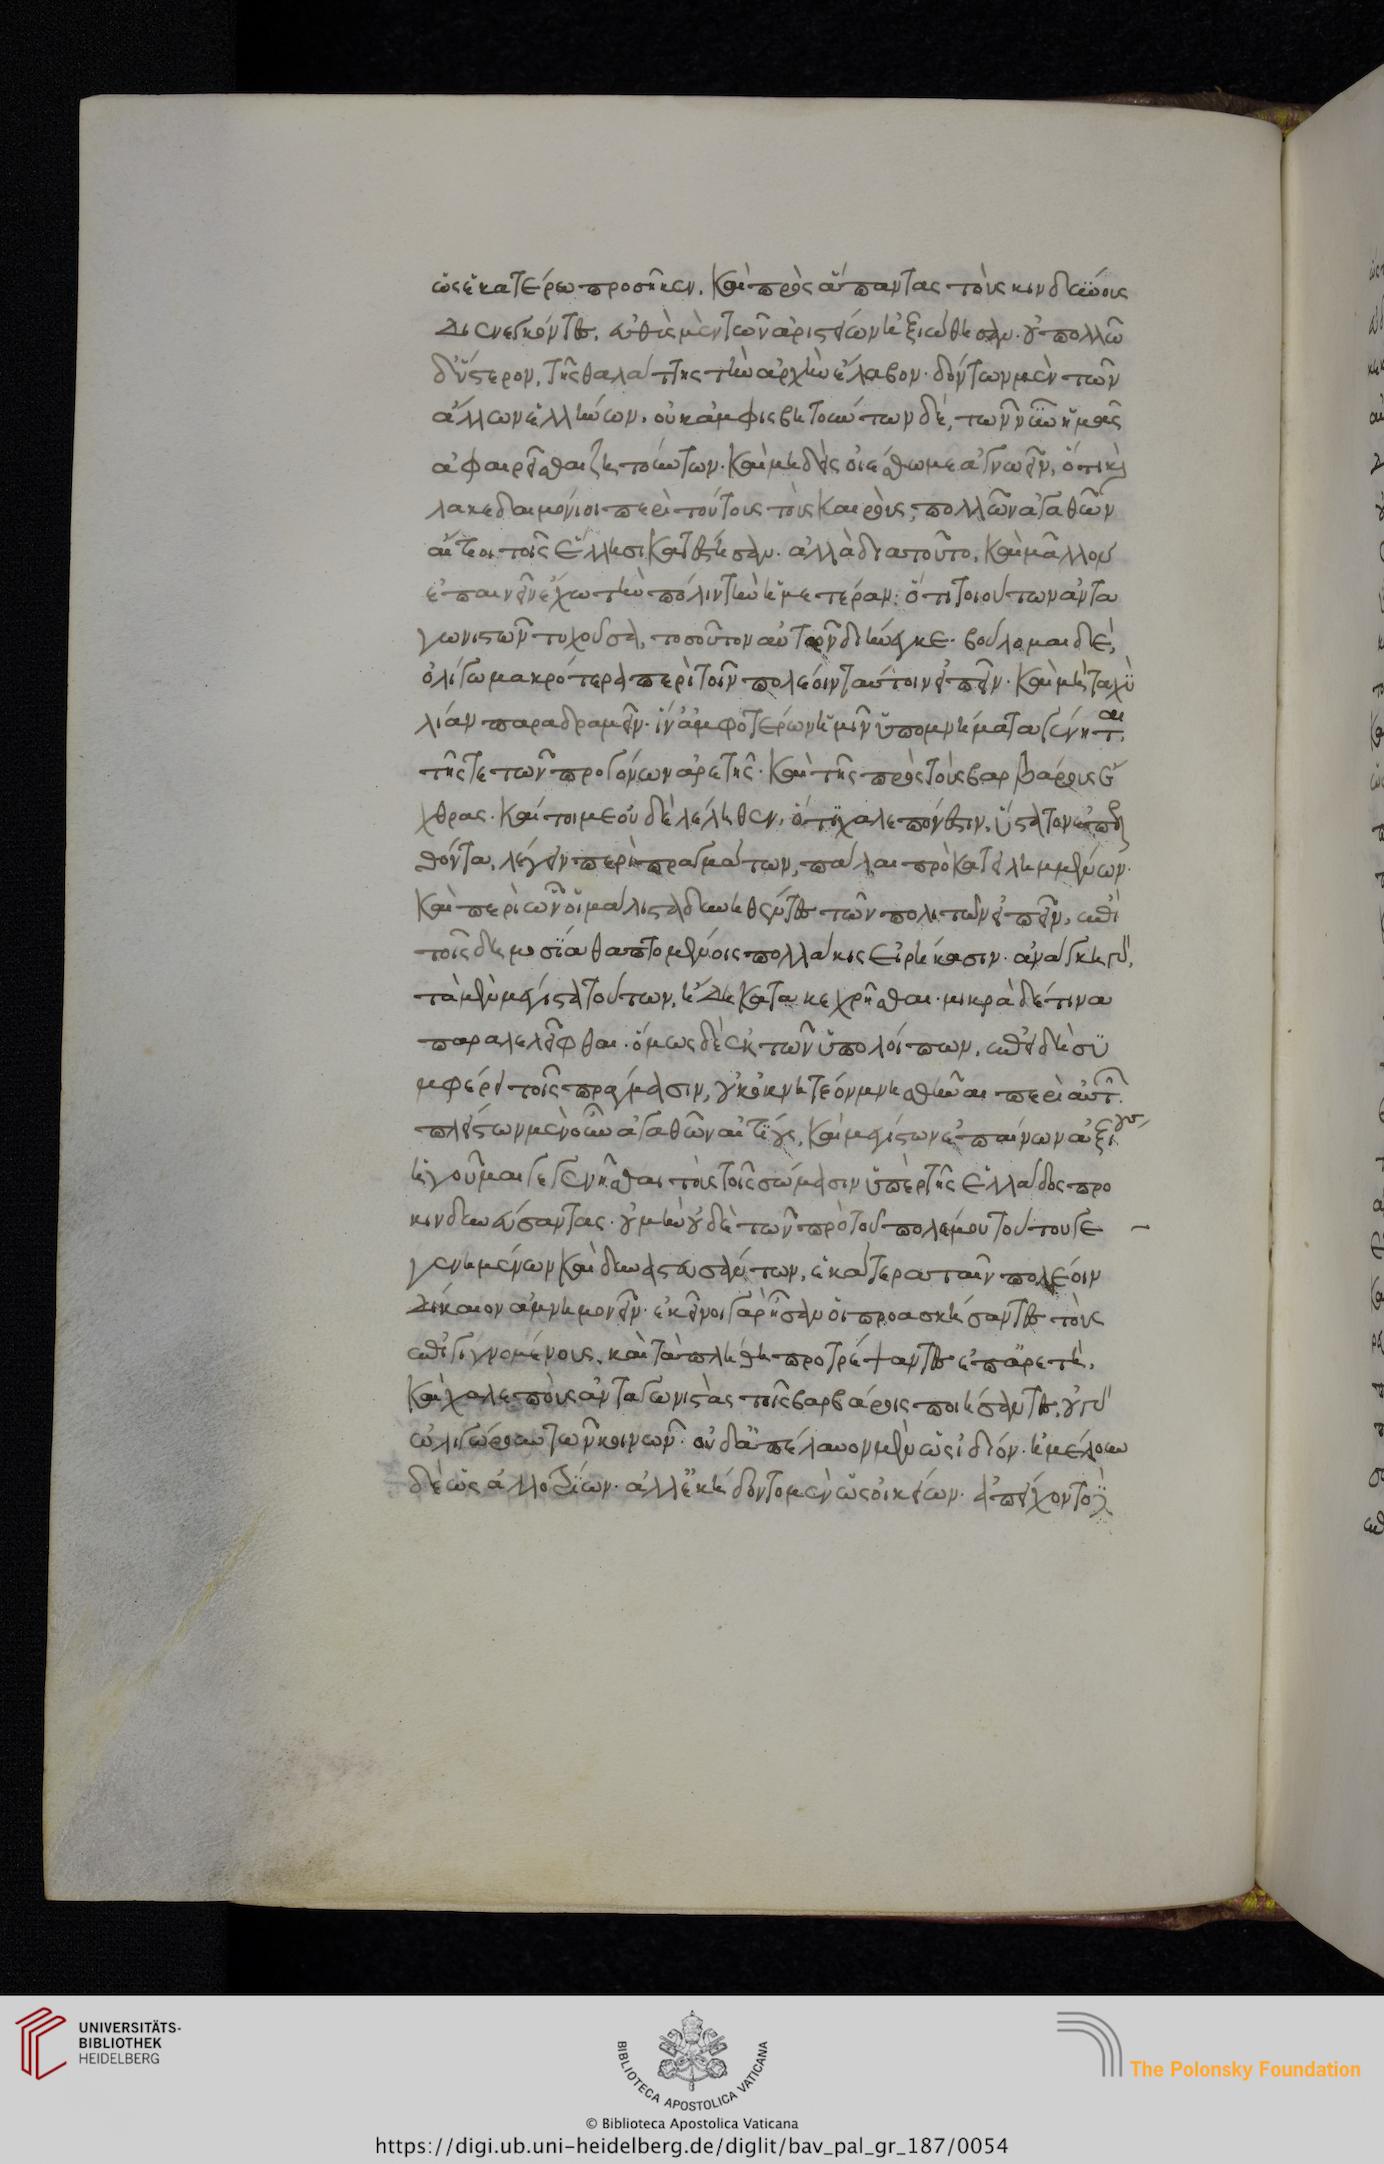 ὡς ἑκατέρω προσῆκεν. καὶ πρὸς ἅπαντας τοὺς κινδύνους
διενεγκόντες, εὐθὺς μὲν τῶν ἀριστείων ἠξιώθησαν. οὐ πολλῶ
δ' ὕστερον, τῆς θαλάττης τὴν ἀρχὴν ἔλαβον. δόντων μὲν τῶν
ἄλλων ἑλλήνων. οὐκ ἀμφισβητούντων δὲ, τῶν νῦν ἡμᾶς
ἀφαιρεῖσθαι ζητούντων. καὶ μηδεὶς οἰέσθω με ἀγνοεῖν, ὅτι καὶ
λακεδαιμόνιοι περὶ τούτους τοὺς καιροὺς, πολλῶν ἀγαθῶν
αἴτιοι τοῖς ἕλλησι κατέστησαν. ἀλλὰ διὰ τοῦτο, καὶ μᾶλλον
ἐπαινεῖν ἔχω τὴν πόλιν τὴν ἡμετέραν. ὅτι τοιούτων ἀντα
γωνιστῶν τυχοῦσα, τοσοῦτον αὐτῶν διήνεγκε. βούλομαι δὲ,
ὀλίγω μακρότερα περὶ τοῖν πολέοιν ταύτοιν εἰπεῖν. καὶ μὴ ταχὺ
λίαν παραδραμεῖν. ἵν' ἀμφοτέρων ἡμῖν ὑπομνήματα γένηται
τῆς τε τῶν προγόνων ἀρετῆς. καὶ τῆς πρὸς τοὺς βαρβάρους ἔ
χθρας. καί τοι με οὐ δὲ λέληθεν, ὅτι χαλεπόν ἐστιν, ὕστατον ἐπελ
θόντα, λέγειν περὶ πραγμάτων, πάλαι προκατειλημμένων.
καὶ περὶ ὧν οἱ μάλιστα δυνηθέντες τῶν πολιτῶν εἰπεῖν, ἐπὶ
τοῖς δημοσία θαπτομένοις πολλάκις εἰρήκασιν. ἀνάγκη γὰρ,
τὰ μὲν μέγιστα τούτων, ἤδη κατακεχρῆσθαι. μικρὰ δέ τινα
παραλελεῖφθαι. ὅμως δὲ ἐκ τῶν ὑπολοίπων, ἐπειδὴ συ
μφέρει τοῖς πράγμασιν, οὐκ ὀκνητέον μνησθῆναι περὶ αὐτῶν.
πλείστων μὲν οὖν ἀγαθῶν αἰτίους, καὶ μεγίστων ἐπαίνων ἀξίους
ἡγοῦμαι γεγενῆσθαι τοὺς τοῖς σώμασιν ὑπὲρ τῆς ἑλλάδος προ
κινδυνεύσαντας. οὐ μὴν οὐ δὲ τῶν πρὸ τοῦ πολέμου τούτου γε
γενημένων καὶ δυναστευσάντων, ἑκατέρα ταῖν πολέοιν
δίκαιον ἀμνημονεῖν. ἐκεῖνοι γὰρ ἦσαν οἱ προασκήσαντες τοὺς
ἐπιγιγνομένους. καὶ τὰ πλήθη προτρέψαντες ἐπ' ἀρετὴ,
καὶ χαλεποὺς ἀνταγωνιστὰς τοῖς βαρβάροις ποιήσαντες. οὐ γὰρ
ὠλιγώρουν τῶν κοινῶν. οὐ δ' ἀπέλαυον μὲν ὡς ἰδίων. ἠμέλουν
δὲ ὡς ἀλλοτρίων. ἀλλ' ἐκήδοντο μὲν ὡς οἰκείων. ἀπείχοντο δ
UNIVERSITÄTS-
BIBLIOTHEK
HEIDELBERG
BIBLIOTECA APOSTOLICA VATICANA
The Polonsky Foundation
© Biblioteca Apostolica Vaticana
https://digi.ub.uni-heidelberg.de/diglit/bav_pal_gr_187/0054